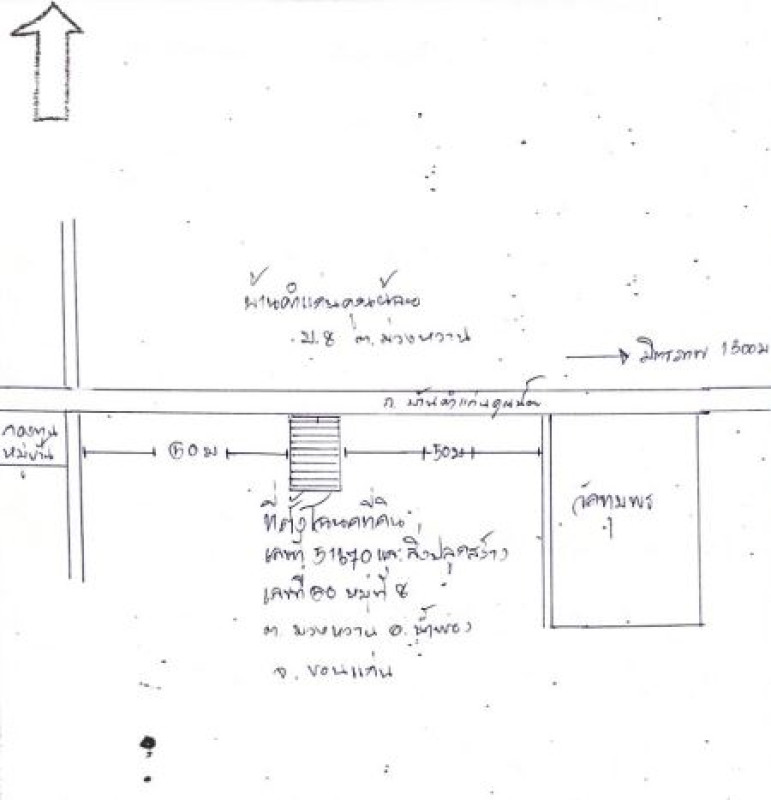 บ้านคำแก่นคูณน้อย
ม.8 ต.ม่วงหวาน
มิตรภาพ 1500ม
ถ. บ้านคำแก่นคูณน้อย
กองทุน
หมู่บ้าน
60 ม
50ม
ที่ตั้งโฉนดที่ดิน
เลขที่ 51670 และสิ่งปลูกสร้าง
เลขที่ 60 หมู่ที่ 8
ต. ม่วงหวาน อ. น้ำพอง
จ. ขอนแก่น